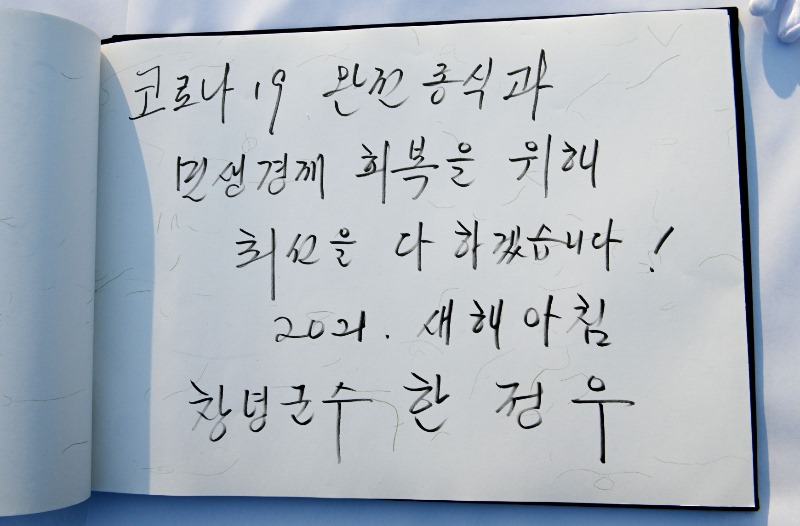 코로나 19 완전종식과
민생경제 회복을 위해
최선을 다하겠습니다!
2021. 새해아침
창녕군수 한정우